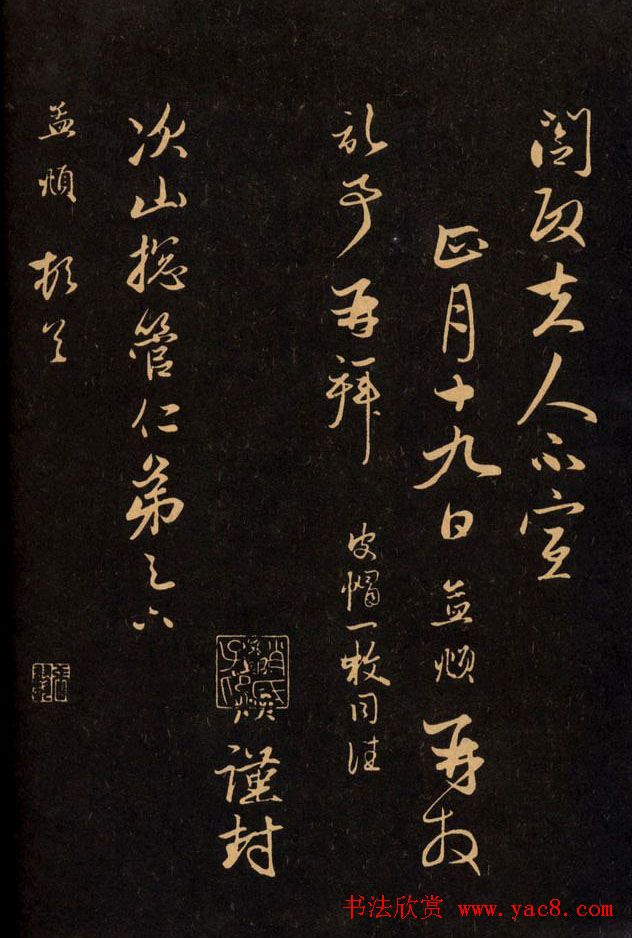 閤政夫人不宣
正月十九日 孟頫 再拜
記事再拜 皮帽一枚同往
謹封
次山摠管仁弟足下
孟頫 頓首
书法欣赏 www.yac8.com